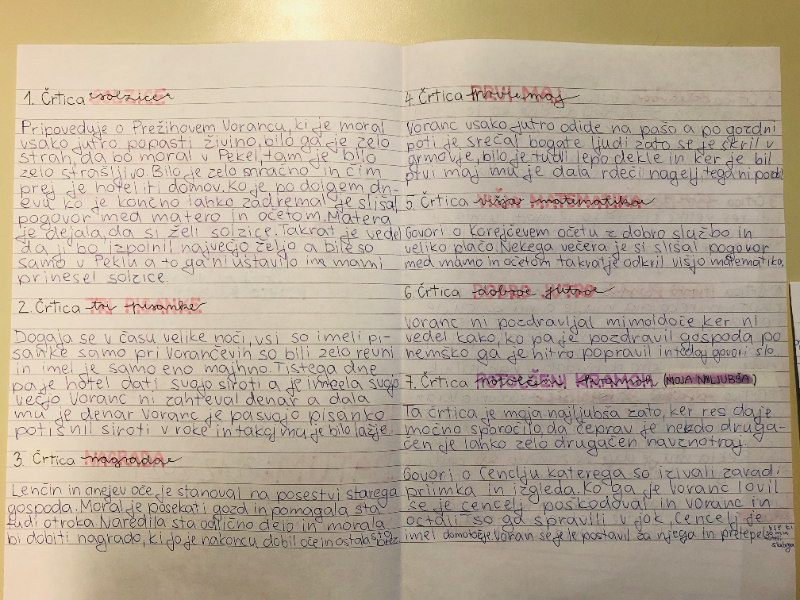 1. Črtica solzice
Pripoveduje o Prežihovem Vorancu, ki je moral
vsako jutro popasti živino, bilo ga je zelo
strah, da bo moral v Pekel, tam je bilo
zelo strašljivo Bilo je zelo smračno in čim
prej je hotel iti domov. Ko je po dolgem dn-
evu ko je končno lahko zadremal je slišal
pogovor med matero in očetom. Matera
je dejala, da si želi solzice. Takrat je vedel
da ji bo izpolnil največjo željo a bile so
samo v Peklu a to ga ni ustavilo in mami
prinesel solzice.
2. Črtica tri pisanke
Dogaja se v času velike noči, vsi so imeli pi-
sanke samo pri Vorančevih so bili zelo revni
in imel je samo eno majhno. Tistega dne
pa je hotel dati svojo siroti a je imela svojo
večjo Voranc ni zahteval denar a dala
mu je denar Voranc je pa svojo pisanko
potisnil siroti v roke in takoj mu je bilo lažje.
3. Črtica nagrada
Lenčin in anejev oče, je stanoval na posestvi starega
gospoda. Moral je posekati gozd in pomagala sta
tudi otroka. Naredila sta odlično delo in morala
bi dobiti nagrado, ki jo je na koncu dobil oče in ostala sta brez
4. Črtica prvi maj
Voranc vsako jutro odide na pašo a po gozdni
poti je srečal bogate ljudi zato se je skril v
grmovje, bilo je tudi lepo dekle in ker je bil
prvi maj mu je dala rdeči nagelj, tega ni
5. Črtica višja matematika
Govori o Korejčevem očetu z dobro službo in
veliko plačo. Nekega večera je si slišal pogovor
med mamo in očetom takvat je odkril višjo matematiko.
6. Črtica dobro jutro
Voranc ni pozdravljal mimoidoče, ker ni
vedel kako, ko pa je pozdravil gospoda po
nemško ga je hitro popravil in zdaj govori slo
7. Črtica potolčeni kramoh (MOJA NAJLJUBŠA)
Ta črtica je moja najljubša zato, ker res daje
močno sporočilo, da čeprav je nekdo druga-
čen je lahko zelo drugačen navznotraj.
Govori o Cenclju katerega so izivali zavadi
priimka in izgleda. Ko ga je Voranc lovil
se je cencelj poškodoval in voranc in
ostali so ga spravili v jok, Cencelj je
imel domotožje, Voran se je le postavil za njega in pretepel